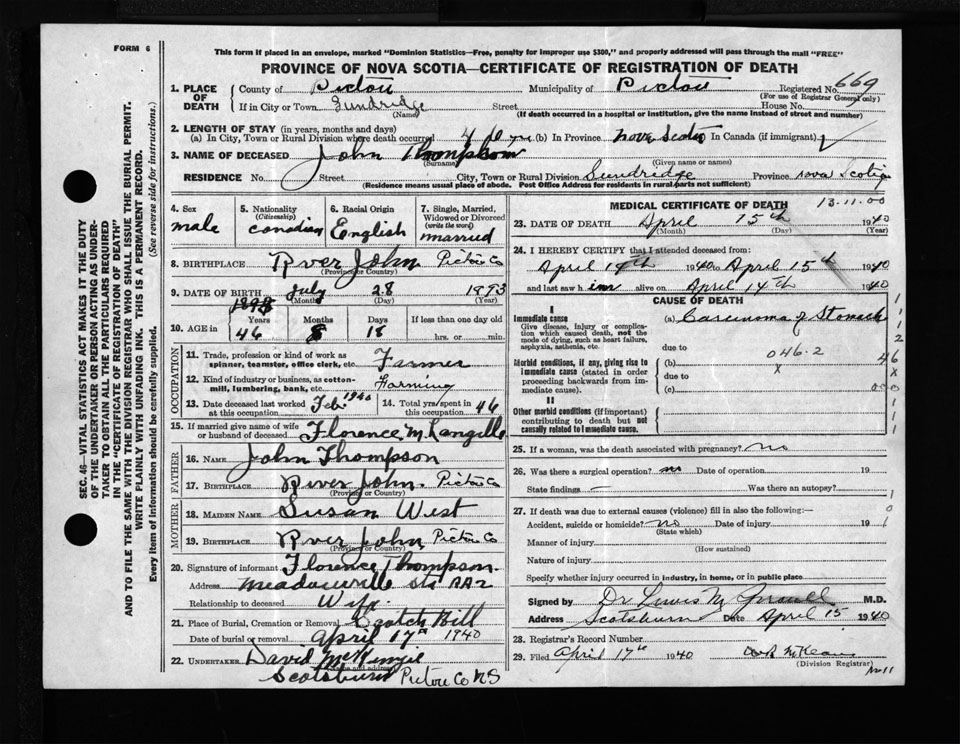 FORM 6
This form if placed in an envelope, marked "Dominion Statistics—Free, penalty for improper use $300," and properly addressed will pass through the mail "FREE"
PROVINCE OF NOVA SCOTIA—CERTIFICATE OF REGISTRATION OF DEATH
SEC. 46—VITAL STATISTICS ACT MAKES IT THE DUTY
OF THE UNDERTAKER OR PERSON ACTING AS UNDER-
TAKER TO OBTAIN ALL THE PARTICULARS REQUIRED
IN THE "CERTIFICATE OF REGISTRATION OF DEATH"
AND TO FILE THE SAME WITH THE DIVISION REGISTRAR WHO SHALL ISSUE THE BURIAL PERMIT.
WRITE PLAINLY WITH UNFADING INK. THIS IS A PERMANENT RECORD.
Every item of information should be carefully supplied. (See reverse side for instructions.)
1. PLACE OF DEATH
County of Pictou Municipality of Pictou Registered No. 669
(For use of Registrar General only)
If in City or Town Sundridge Street House No.
(Name) (If death occurred in a hospital or institution, give the name instead of street and number)
2. LENGTH OF STAY (in years, months and days)
(a) In City, Town or Rural Division where death occurred (b) In Province Nova Scotia In Canada (if immigrant)
3. NAME OF DECEASED John Thompson
(Surname) (Given name or names)
RESIDENCE No. Street City, Town or Rural Division Sundridge Province Nova Scotia
(Residence means usual place of abode. Post Office Address for residents in rural parts not sufficient)
4. Sex male
5. Nationality (Citizenship) Canadian
6. Racial Origin English
7. Single, Married, Widowed or Divorced (write the word) married
8. BIRTHPLACE River John Pictou Co
(Province or Country)
9. DATE OF BIRTH July 28 1893
(Month) (Day) (Year)
10. AGE in Years Months Days If less than one day old
46 8 18 hrs. or min.
OCCUPATION
11. Trade, profession or kind of work as spinner, teamster, office clerk, etc. Farmer
12. Kind of industry or business, as cotton-mill, lumbering, bank, etc. Farming
13. Date deceased last worked at this occupation Feb. 1940 14. Total yrs. spent in this occupation 46
15. If married give name of wife or husband of deceased Florence M. Langille
FATHER
16. Name John Thompson
17. Birthplace River John. Pictou Co
(Province or Country)
MOTHER
18. MAIDEN NAME Susan West
19. Birthplace River John, Pictou Co
(Province or Country)
20. Signature of informant Florence Thompson.
Address Meadowville Sta RR2
Relationship to deceased Wife
21. Place of Burial, Cremation or Removal Scotch Hill
Date of burial or removal April 17th 1940
22. UNDERTAKER David McKenzie
(Name and address)
Scotsburn Pictou Co NS
MEDICAL CERTIFICATE OF DEATH 13.11.00
23. DATE OF DEATH April 15th 1940
(Month) (Day) (Year)
24. I HEREBY CERTIFY that I attended deceased from:
April 14th 1940 to April 15th 1940
and last saw him alive on April 14th 1940
CAUSE OF DEATH
I
Immediate cause
Give disease, injury or complication which caused death, not the mode of dying, such as heart failure, asphyxia, asthenia, etc.
(a) Carcinoma of Stomach
due to
Morbid conditions, if any, giving rise to immediate cause (stated in order proceeding backwards from immediate cause).
(b) 046.2
x
due to
(c)
II
Other morbid conditions (if important) contributing to death but not causally related to immediate cause.
25. If a woman, was the death associated with pregnancy? no
26. Was there a surgical operation? no Date of operation 19
State findings Was there an autopsy?
27. If death was due to external causes (violence) fill in also the following:—
Accident, suicide or homicide? no Date of injury 19
(State which)
Manner of injury
(How sustained)
Nature of injury
Specify whether injury occurred in industry, in home, or in public place
Signed by Dr Lewis M M.D.
Address Scotsburn Date April 15 1940
28. Registrar's Record Number
29. Filed April 17th 1940
(Division Registrar)